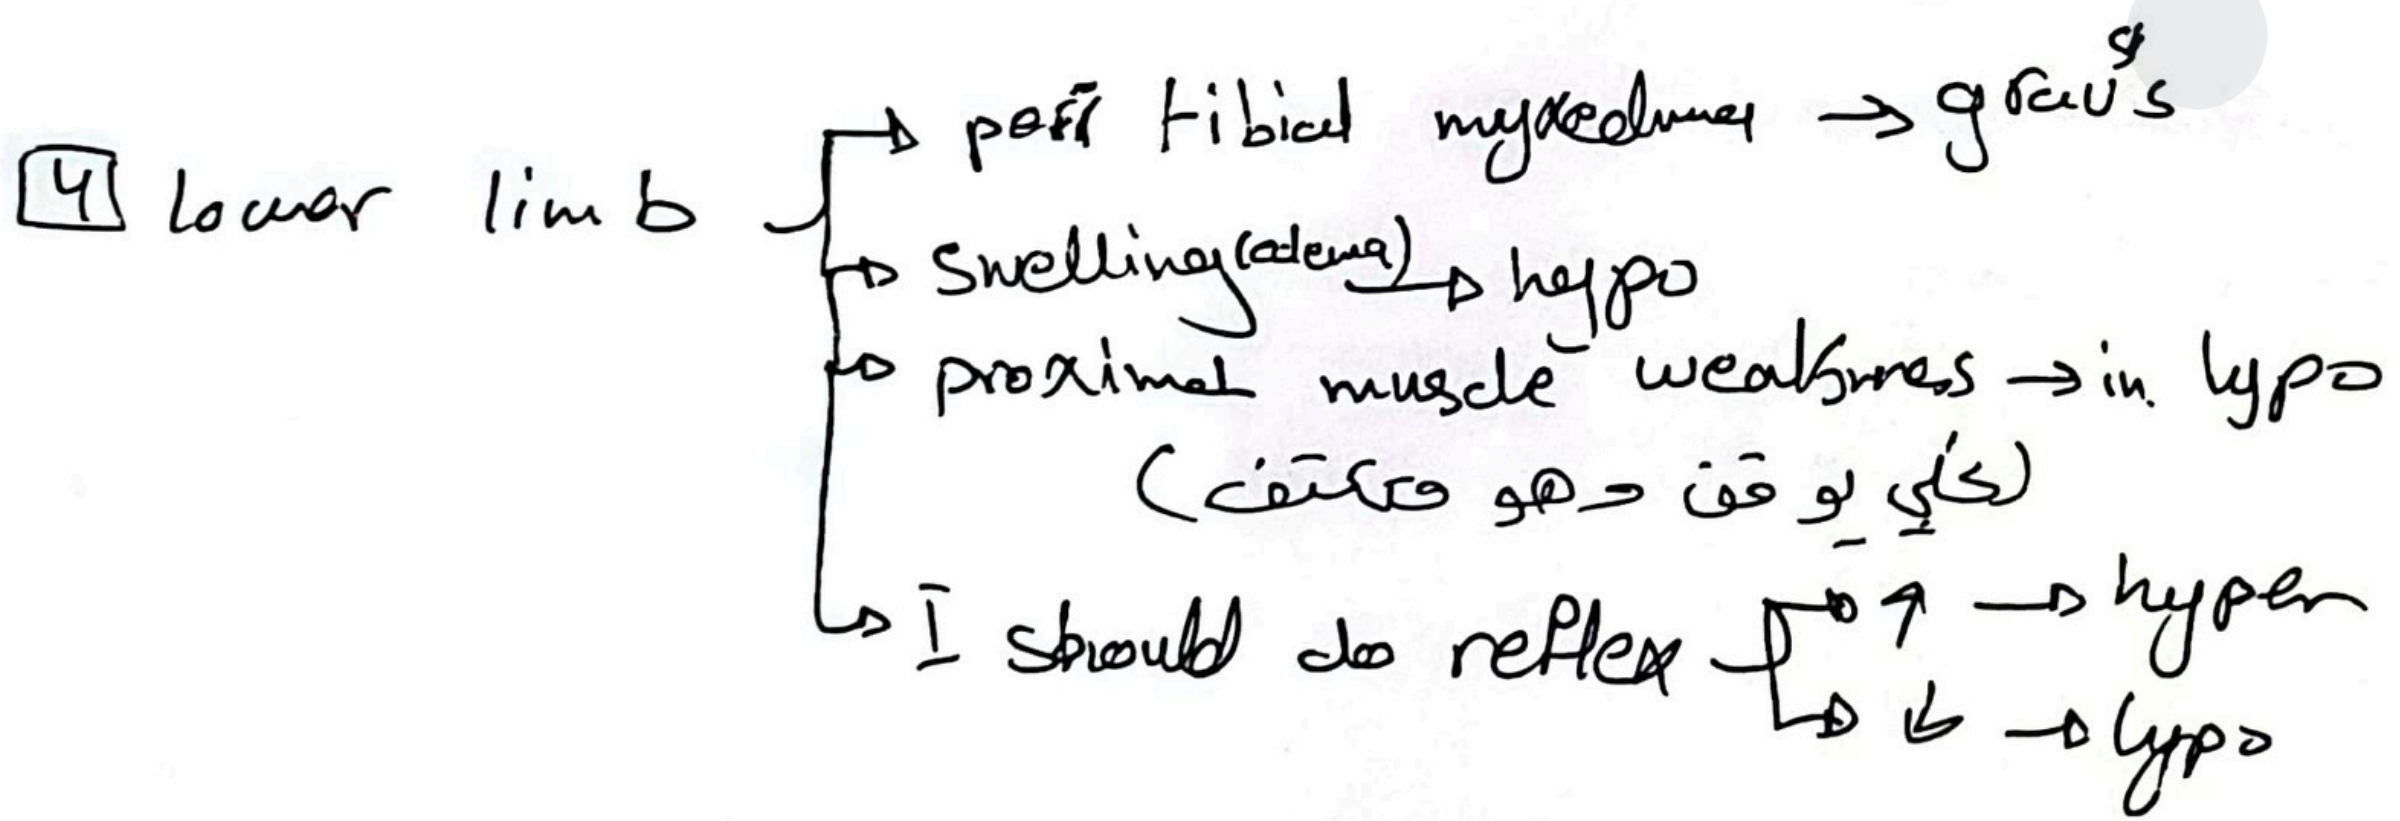 4 lower limb
→ tibial myxedema → grav's
→ swelling (edema) → hypo
→ proximal muscle weakness → in hypo
(خلي يوقف وهو مكتف)
→ I should do reflex
→ ↑ → hyper
→ ↓ → hypo